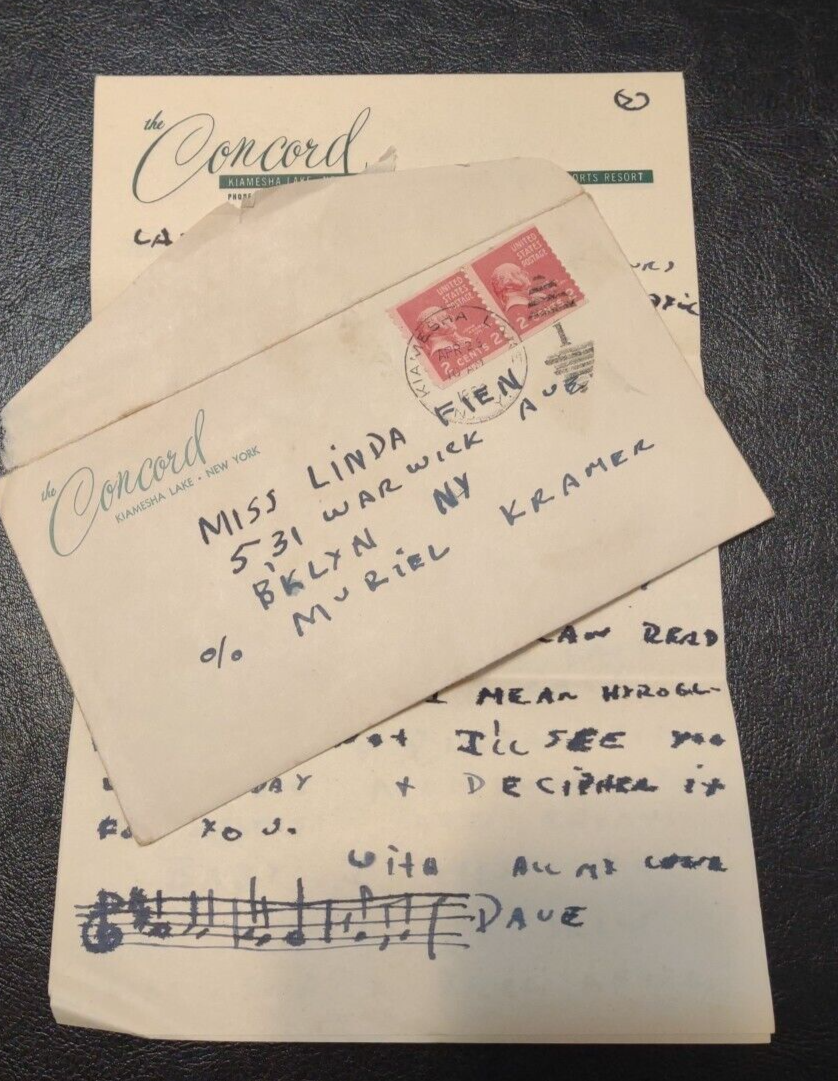 2
the Concord
KIAMESHA LAKE
ORTS RESORT
PHONE
UNITED STATES POSTAGE
2 CENTS 2
UNITED STATES POSTAGE
2
KIAMESHA L
APR 2
N.Y.
1
the Concord
KIAMESHA LAKE • NEW YORK
MISS LINDA FIEN
531 WARWICK AVE
BKLYN NY
% MURIEL KRAMER
CAN READ
I MEAN HYROGL-
I'LL SEE YOU
DAY + DECIPHER IT
FO YOU.
WITH ALL MY LOVE
DAVE